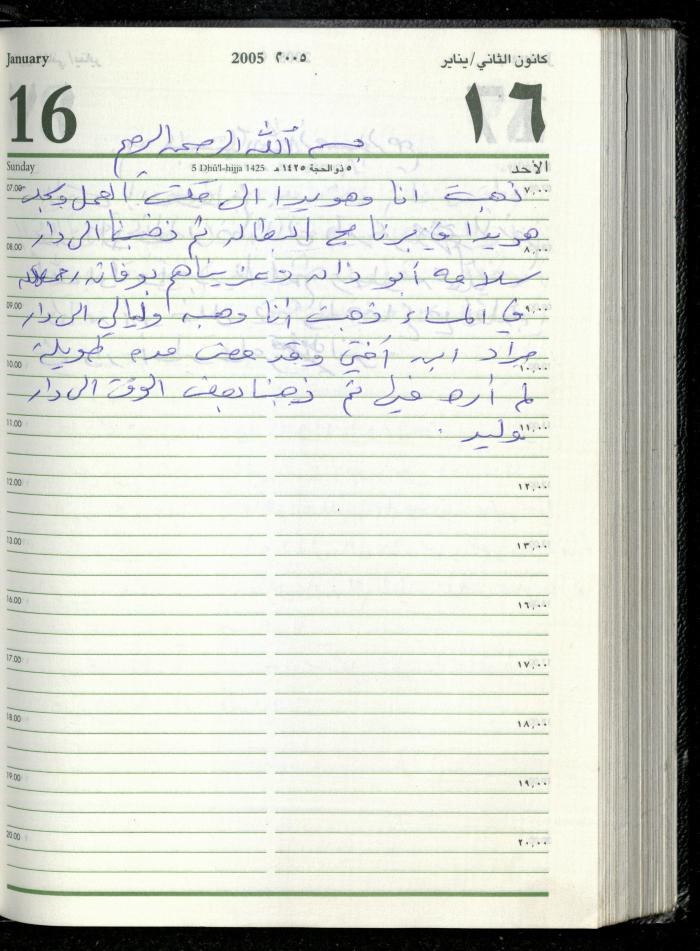 January 2005 ٢٠٠٥ كانون الثاني/يناير
16 ١٦
بسم الله الرحمن الرحيم
Sunday 5 Dhû'l-hijja 1425 ٥ ذو الحجة ١٤٢٥ هـ الأحد
07.00 ٧,٠٠
ذهبت انا وهويدا الى مكتب العمل وسجلت
هويدا في برنامج البطاله ثم ذهبنا الى دار
08.00 ٨,٠٠
سلامه أبو وعزيناهم بوفاته رحمه الله
09.00 ٩,٠٠
في المساء ذهبت أنا وهبه وليالي الى دار
مراد ابن أختي وقد مضت مده طويلة
10.00 ١٠,٠٠
لم أره ثم ذهبنا بعض الوقت الى دار
11.00 ١١,٠٠
وليد .
12.00 ١٢,٠٠
13.00 ١٣,٠٠
16.00 ١٦,٠٠
17.00 ١٧,٠٠
18.00 ١٨,٠٠
19.00 ١٩,٠٠
20.00 ٢٠,٠٠